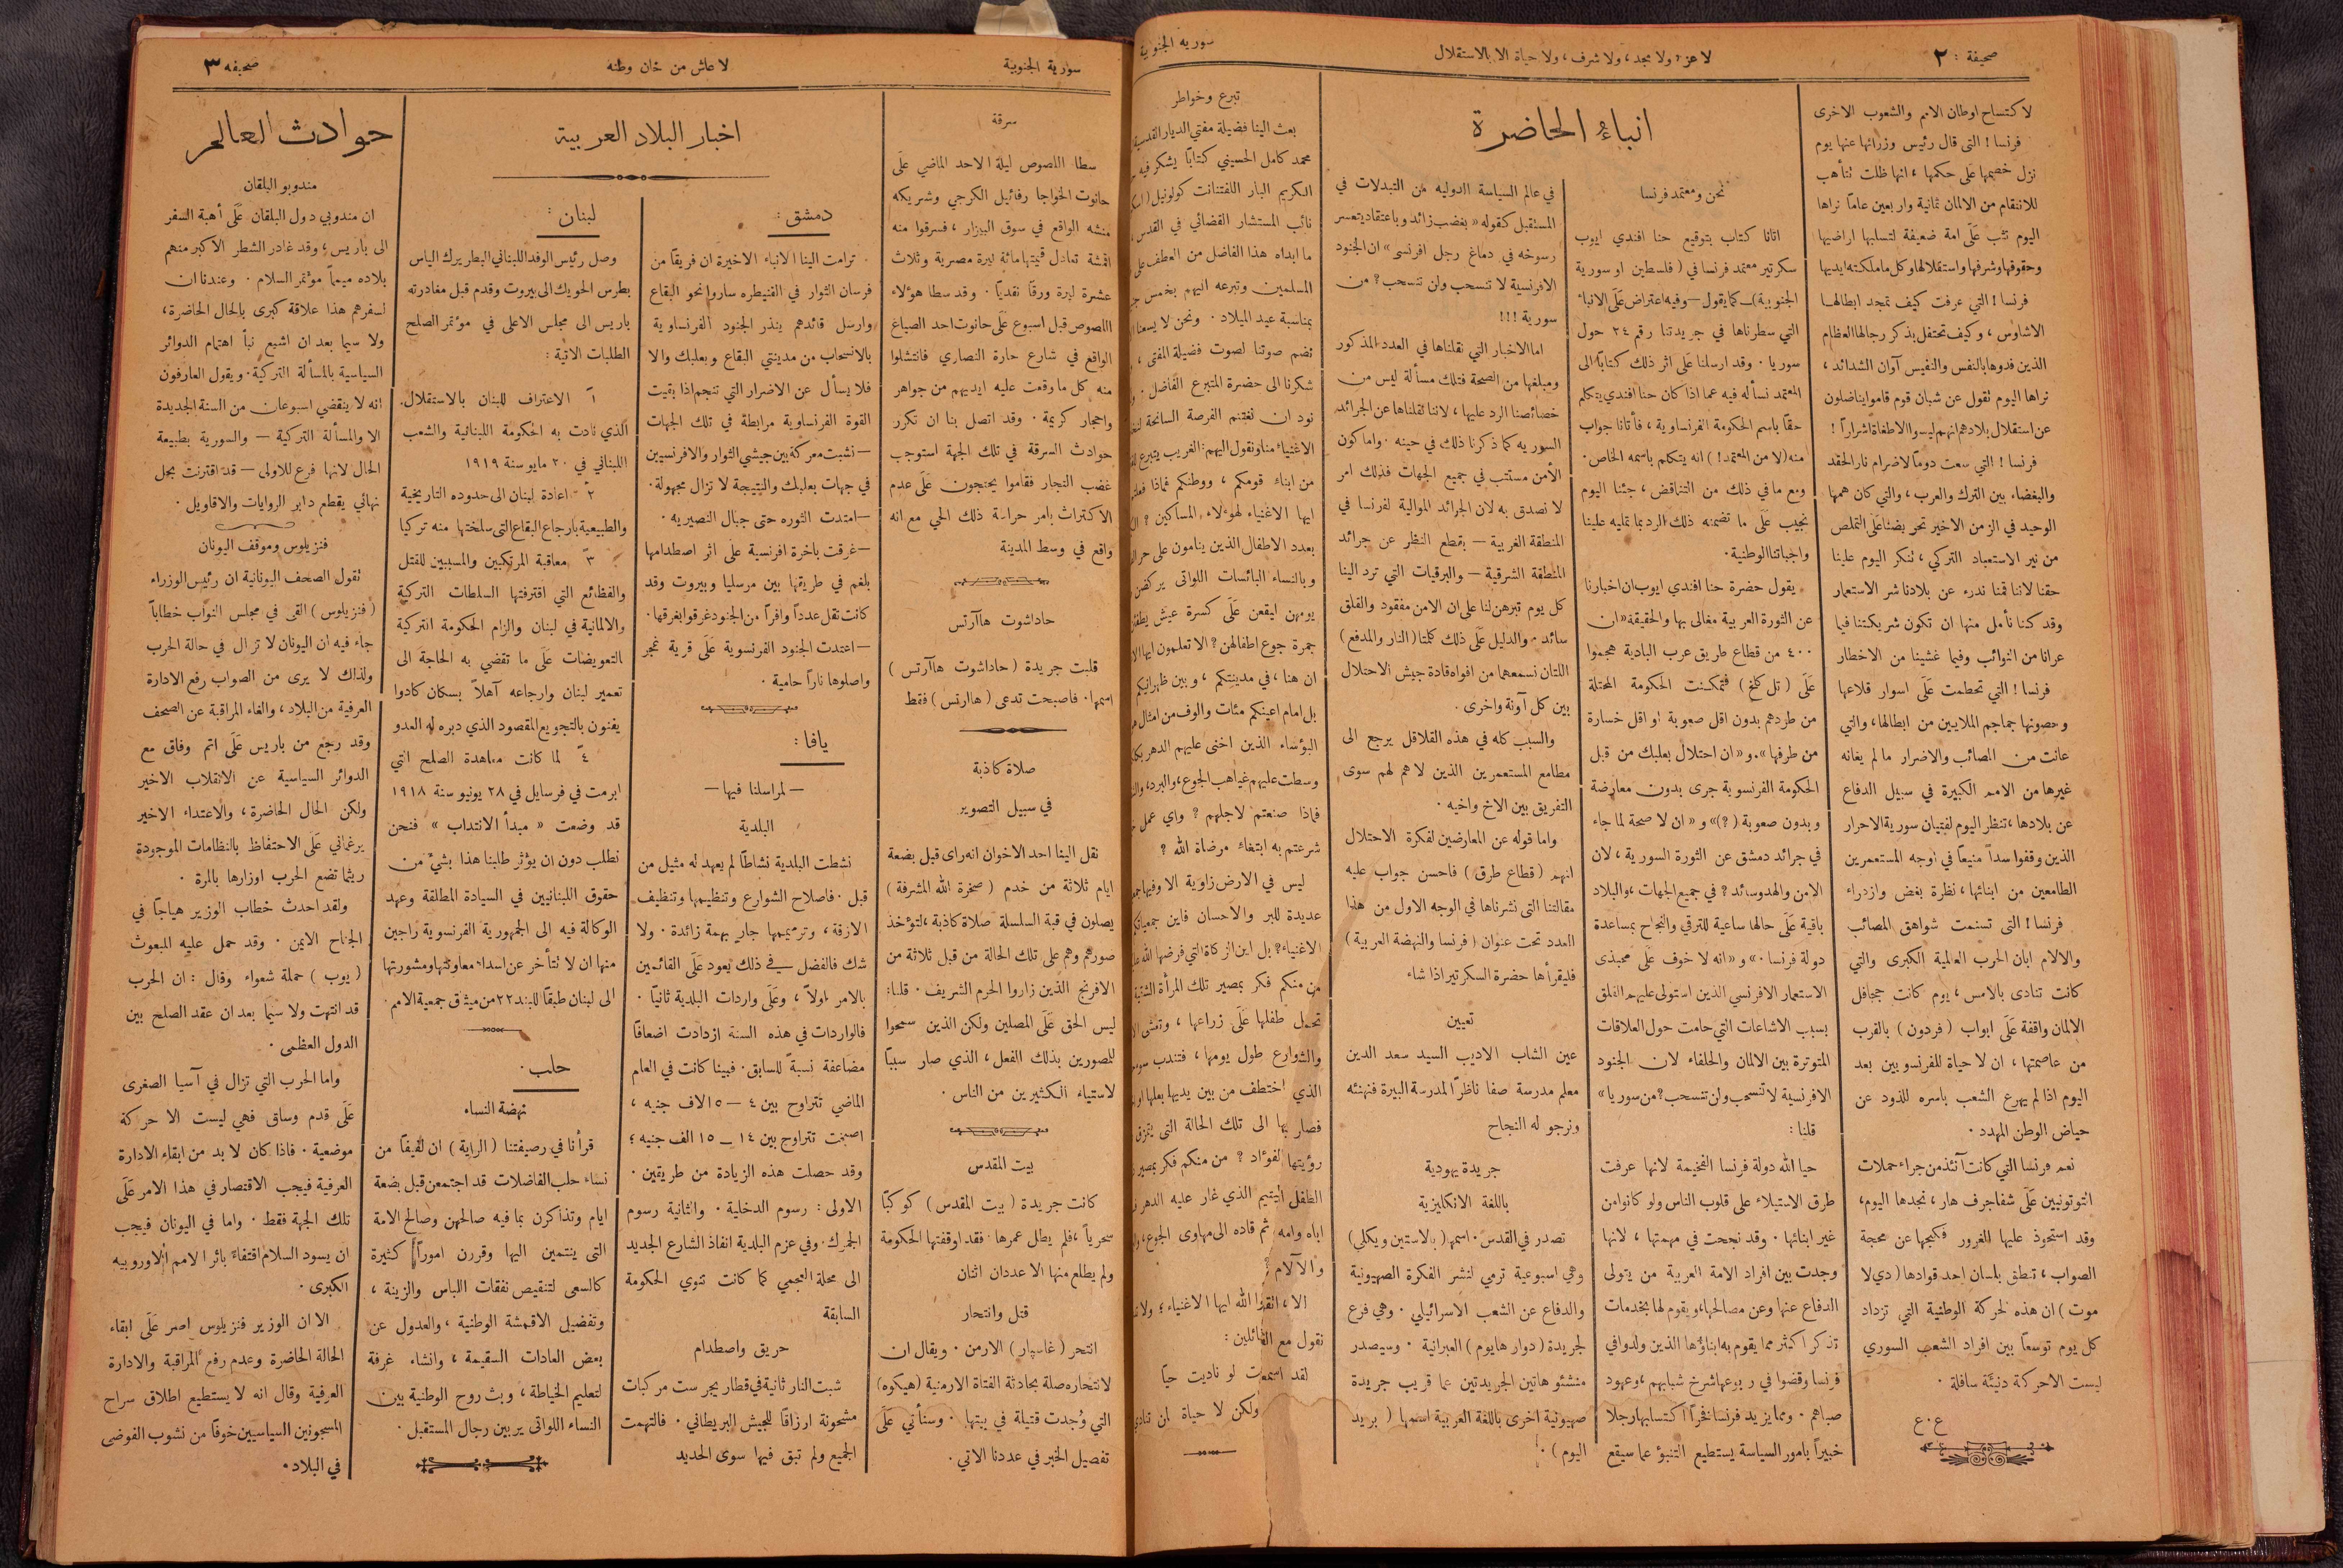 صحيفة : ٢
لا عز ولا مجد ، ولا شرف ، ولا حياة الا بالاستقلال
سورية الجنوبية
لاكتساح اوطان الامم والشعوب الاخرى
فرنسا ! التي قال رئيس وزرائها عنها يوم
نزل خصيمها عَلَى حكمها ، انها ظلت تتأهب
للانتقام من الالمان ثمانية واربعين عاماً نراها
اليوم تثب عَلَى امة ضعيفة لتسلبها اراضيها
وحقوقها وشرفها واستقلالها وكل ما ملكته ايديها
فرنسا ! التي عرفت كيف تمجد ابطالهــا
الاشاوس ، وكيف تحتفل بذكر رجالها العظام
الذين فدوها بالنفس والنفيس آوان الشدائد ،
نراها اليوم تقول عن شبان قوم قاموا يناضلون
عن استقلال بلادهم انهم ليسوا الا طغاة اشراراً !
فرنسا ! التي سعت دوماً لاضرام نار الحقد
والبغضاء بين الترك والعرب ، والتي كان همها
الوحيد في الزمن الاخير نحو بضنا عَلَى التملص
من نير الاستعباد التركي ، تنكر اليوم علينا
حقنا لاننا قمنا ندرء عن بلادنا شر الاستعمار
وقد كنا نأمل منها ان تكون شريكتنا فيما
عرانا من النوائب وفيما غشينا من الاخطار
فرنسا ! التي تحطمت عَلَى اسوار قلاعها
وحصونها جماجم الملايين من ابطالها ، والتي
عانت من المصائب والاضرار ما لم يعانه
غيرها من الامم الكبيرة في سبيل الدفاع
عن بلادها ، تنظر اليوم لفتيان سورية الاحرار
الذين وقفوا سداً منيعاً في اوجه المستعمرين
الطامعين من ابنائها ، نظرة بغض وازدراء
فرنسا ! التي تسنمت شواهق المصائب
والالام ابان الحرب العالمية الكبرى والتي
كانت تنادى بالامس ، يوم كانت جحافل
الالمان واقفة عَلَى ابواب ( فردون ) بالقرب
من عاصمتها ، ان لا حياة للفرنسويين بعد
اليوم اذا لم يهرع الشعب باسره للذود عن
حياض الوطن المهدد .
نعم فرنسا التي كانت آنئذ من جراء حملات
التوتونيين عَلَى شفا جرف هار ، نجدها اليوم ،
وقد استحوذ عليها الغرور فكبحها عن محجة
الصواب ، تنطق بلسان احد قوادها ( دي لا
موت ) ان هذه الحركة الوطنية التي تزداد
كل يوم توسعاً بين افراد الشعب السوري
ليست الا حركة دنيئة سافلة .
ع . ع
انباء الحاضرة
نحن ومعتمد فرنسا
اتانا كتاب بتوقيع حنا افندي ايوب
سكرتير معتمد فرنسا في ( فلسطين او سورية
الجنوبية ) ــ كما يقول ــ وفيه اعتراض عَلَى الانباء
التي سطرناها في جريدتنا رقم ٢٤ حول
سوريا . وقد ارسلنا عَلَى اثر ذلك كتاباً الى
المعتمد نسأله فيه عما اذا كان حنا افندي يتكلم
حقاً باسم الحكومة الفرنساوية ، فأتانا جواب
منه ( لا من المعتمد ! ) انه يتكلم باسمه الخاص .
ومع ما في ذلك من التناقض ، جئنا اليوم
نجيب عَلَى ما تضمنه ذلك الرد بما تمليه علينا
واجباتنا الوطنية .
يقول حضرة حنا افندي ايوب ان اخبارنا
عن الثورة العربية مغالى بها والحقيقة « ان
٤٠٠ من قطاع طريق عرب البادية هجموا
عَلَى ( تل كلخ ) فتمكنت الحكومة المحتلة
من طردهم بدون اقل صعوبة او اقل خسارة
من طرفها » . و « ان احتلال بعلبك من قبل
الحكومة الفرنسوية جرى بدون معارضة
وبدون صعوبة ( ؟ ) » و « ان لا صحة لما جاء
في جرائد دمشق عن الثورة السورية ، لان
الامن والهدو سائد ؟ في جميع الجهات ، والبلاد
باقية عَلَى حالها ساعية للترقي والنجاح بمساعدة
دولة فرنسا . » و « انه لا خوف عَلَى محبذى
الاستعمار الافرنسي الذين استولى عليهم القلق
بسبب الاشاعات التي حامت حول العلاقات
المتوترة بين الالمان والحلفاء لان الجنود
الافرنسية لا تنسحب ولن تنسحب ؟ من سوريا »
قلنا :
حيا الله دولة فرنسا الفخيمة لانها عرفت
طرق الاستيلاء على قلوب الناس ولو كانوا من
غير ابنائها . وقد نجحت في مهمتها ، لانها
وجدت بين افراد الامة العربية من يتولى
الدفاع عنها وعن مصالحها ، ويقوم لها بخدمات
تذكر اكثر مما يقوم به ابناؤها الذين ولدوا في
فرنسا وقضوا في ربوعها شرخ شبابهم ، وعهود
صباهم . ومما يزيد فرنسا فخراً اكتسابها رجلا
خبيراً بامور السياسة يستطيع التنبؤ عما سيقع
في عالم السياسة الدوليه من التبدلات في
المستقبل كقوله « بغضب زائد وباعتقاد يتعسر
رسوخه في دماغ رجل افرنسي » ان الجنود
الافرنسية لا تنسحب ولن تنسحب ؟ من
سورية ! ! !
اما الاخبار التي نقلناها في العدد المذكور
ومبلغها من الصحة فتلك مسألة ليس من
خصائصنا الرد عليها ، لاننا نقلناها عن الجرائد
السوريه كما ذكرنا ذلك في حينه . واما كون
الأمن مستتب في جميع الجهات فذلك امر
لا نصدق به لان الجرائد الموالية لفرنسا في
المنطقة الغربية ــ بقطع النظر عن جرائد
المنطقة الشرقية ــ والبرقيات التي ترد الينا
كل يوم تبرهن لنا على ان الامن مفقود والقلق
سائد ، والدليل عَلَى ذلك كلمتا ( النار والمدفع )
اللتان نسمعهما من افواه قادة جيش الاحتلال
بين كل آونة واخرى .
والسبب كله في هذه القلاقل يرجع الى
مطامع المستعمرين الذين لا هم لهم سوى
التفريق بين الاخ واخيه .
واما قوله عن المعارضين لفكرة الاحتلال
انهم ( قطاع طرق ) فاحسن جواب عليه
مقالتنا التي نشرناها في الوجه الاول من هذا
العدد تحت عنوان ( فرنسا والنهضة العربية )
فليقرأها حضرة السكرتير اذا شاء
تعيين
عين الشاب الاديب السيد سعد الدين
معلم مدرسة صفا ناظراً لمدرسة البيرة فنهنئه
ونرجو له النجاح
جريدة يهودية
باللغة الانكليزية
تصدر في القدس . اسمها ( بالاستين ويكلي )
وهي اسبوعية ترمي لنشر الفكرة الصهيونية
والدفاع عن الشعب الاسرائيلي . وهي فرع
لجريدة ( دوار هايوم ) العبرانية . وسيصدر
منشئو هاتين الجريدتين عما قريب جريدة
صهيونية اخرى باللغة العربية اسمها ( بريد
اليوم ) .
تبرع وخواطر
بعث الينا فضيلة مفتي الديار القدسية
محمد كامل الحسيني كتاباً يشكر فيه
الكريم البار اللفتنانت كولونيل
نائب المستشار القضائي في القدس
ما ابداه هذا الفاضل من العطف على
المسلمين وتبرعه اليهم بخمس
بمناسبة عيد الميلاد . ونحن لا يسعنا
نضم صوتنا لصوت فضيلة المفتي ،
شكرنا الى حضرة المتبرع الفاضل .
نود ان نغتنم الفرصة السانحة
الاغنياء منا ونقول اليهم : الغريب يتبرع
من ابناء قومكم ، ووطنكم فماذا
ايها الاغنياء لهؤلاء المساكين ؟
بعدد الاطفال الذين ينامون على
وبالنساء البائسات اللواتى يركضن
يومهن ليقعن عَلَى كسرة عيش
جمرة جوع اطفالهن ؟ الا تعلمون ايها
ان هنا ، في مدينتكم ، وبين ظهرانيكم
بل امام اعينكم مئات والوف من امثال
البؤساء الذين اخنى عليهم الدهر
وسطت عليهم غياهب الجوع ، والبرد ،
فماذا صنعتم لاجلهم ؟ واي عمل
شرعتم به ابتغاء مرضاة الله ؟
ليس في الارض زاوية الا وفيها
عديدة للبر والاحسان فاين
الاغنياء ؟ بل اين الزكاة التي فرضها الله
من منكم فكر بمصير تلك المرأة
تحمل طفلها عَلَى زراعها ، وتمشى
والشوارع طول يومها ، فتندب
الذي اختطف من بين يديها بعلها
فصار بها الى تلك الحالة التي
رؤيتها الفؤاد ؟ من منكم فكر بمصير
الطفل اليتيم الذي غار عليه الدهر
اباه وامه ، ثم قاده الى مهاوى الجوع ،
والآلام ؟
الا ، اتقوا الله ايها الاغنياء ؛
نقول مع القائلين :
لقد اسمعت لو ناديت حياً
ولكن لا حياة لمن تنادي
سورية الجنوبية
لا عاش من خان وطنه
صحيفه ٣
سرقة
سطا اللصوص ليلة الاحد الماضي عَلَى
حانوت الخواجا رفائيل الكرجي وشريكه
منشه الواقع في سوق البيزار ، فسرقوا منه
اقمشة تعادل قيمتها مائة ليرة مصرية وثلاث
عشرة ليرة ورقاً نقدياً . وقد سطا هؤلاء
اللصوص قبل اسبوع عَلَى حانوت احد الصياغ
الواقع في شارع حارة النصارى فانتشلوا
منه كل ما رقعت عليه ايديهم من جواهر
واحجار كريمة . وقد اتصل بنا ان تكرر
حوادث السرقة في تلك الجهة استوجب
غضب التجار فقاموا يحتجون عَلَى عدم
الاكتراث بامر حراسة ذلك الحي مع انه
واقع في وسط المدينة
حاداشوت هاآرتس
قلبت جريدة ( حاداشوت هاآرتس )
اسمها . فاصبحت تدعى ( هاارتس ) فقط
صلاة كاذبة
في سبيل التصوير
نقل الينا احد الاخوان انه راى قبل بضعة
ايام ثلاثة من خدم ( صخرة الله المشرفة )
يصلون في قبة السلسلة صلاة كاذبة ، لتؤخذ
صورهم وهم على تلك الحالة من قبل ثلاثة من
الافرنج الذين زاروا الحرم الشريف . قلنا :
ليس الحق عَلَى المصلين ولكن الذين سمحوا
للمصورين بذلك الفعل ، الذي صار سبباً
لاستياء الكثيرين من الناس .
بيت المقدس
كانت جريدة ( بيت المقدس ) كوكباً
سحرياً ، فلم يطل عمرها فقد اوقفتها الحكومة
ولم يطلع منها الا عددان اثنان
قتل وانتحار
انتحر ( غاسپار ) الارمن . ويقال ان
لانتحاره صلة بحادثة الفتاة الارمنية ( هيكوه )
التي وُجدت قتيلة في بيتها . وسنأتي عَلَى
تفصيل الخبر في عددنا الاتي .
اخبار البلاد العربية
دمشق :
ترامت الينا الانباء الاخيرة ان فريقاً من
فرسان الثوار في القنيطره ساروا نحو البقاع
وارسل قائدهم ينذر الجنود الفرنساوية
بالانسحاب من مدينتي البقاع وبعلبك والا
فلا يسأل عن الاضرار التي تنجم اذا بقيت
القوة الفرنساوية مرابطة في تلك الجهات
ــ نشبت معركة بين جيشي الثوار والافرنسيين
في جهات بعلبك والنتيجة لا تزال مجهولة .
ــ امتدت الثوره حتى جبال النصيريه .
ــ غرقت باخرة افرنسية على اثر اصطدامها
بلغم في طريقها بين مرسليا وبيروت وقد
كانت تقل عدداً وافراً من الجنود غرقوا بغرقها .
ــ اعتدت الجنود الفرنسوية عَلَى قرية غجر
واصلوها ناراً حامية .
يافا :
ــ لمراسلنا فيها ــ
البلدية
نشطت البلدية نشاطاً لم يعهد له مثيل من
قبل . فاصلاح الشوارع وتنظيمها وتنظيف
الازقة ، وترميمها جار بهمة زائدة . ولا
شك فالفضل في ذلك يعود عَلَى القائمين
بالامر اولاً ، وعَلَى واردات البلدية ثانياً .
فالواردات في هذه السنة ازدادت اضعافاً
مضاعفة نسبةً للسابق . فبينا كانت في العام
الماضي تتراوح بين ٤ ــ ٥ الاف جنيه ،
اصبحت تتراوح بين ١٤ ــ ١٥ الف جنيه ؛
وقد حصلت هذه الزيادة من طريقين .
الاولى : رسوم الدخلية . والثانية رسوم
الجمرك . وفي عزم البلدية انفاذ الشارع الجديد
الى محلة العجمي كما كانت تنوي الحكومة
السابقة
حريق واصطدام
شبت النار ثانية في قطار يجر ست مركبات
مشحونة ارزاقاً للجيش البريطاني . فالتهمت
الجميع ولم تبق فيها سوى الحديد
لبنان :
وصل رئيس الوفد اللبناني البطريرك الياس
بطرس الحويك الى بيروت وقدم قبل مغادرته
باريس الى مجلس الاعلى في مؤتمر الصلح
الطلبات الاتية :
١ً الاعتراف للبنان بالاستقلال .
الذي نادت به الحكومة اللبنانية والشعب
اللبناني في ٢٠ مايو سنة ١٩١٩
٢ً اعادة لبنان الى حدوده التاريخية
والطبيعية بارجاع البقاع التي سلختها منه تركيا
٣ً معاقبة المرتكبين والمسببين للقتل
والفظائع التي اقترفتها السلطات التركية
والالمانية في لبنان والزام الحكومة التركية
بالتعويضات عَلَى ما تقضي به الحاجة الى
تعمير لبنان وارجاعه آهلاً بسكان كادوا
يفنون بالتجويع المقصود الذي دبره له العدو
٤ً لما كانت معاهدة الصلح التي
ابرمت في فرسايل في ٢٨ يونيو سنة ١٩١٨
قد وضعت « مبدأ الانتداب » فنحن
نطلب دون ان يؤثر طلبنا هذا بشيءٍ من
حقوق اللبنانيين في السيادة المطلقة وعهد
الوكالة فيه الى الجمهورية الفرنسوية راجين
منها ان لا تتأخر عن اسداء معاونتها ومشورتها
الى لبنان طبقاً للبند ٢٢ من ميثاق جمعية الامم .
حلب .
نهضة النساء
قرأنا في رصيفتنا ( الراية ) ان لفيفاً من
نساء حلب الفاضلات قد اجتمعن قبل بضعة
ايام وتذاكرن بما فيه صالحهن وصالح الامة
التي ينتمين اليها وقررن اموراً كثيرة
كالسعى لتنقيص نفقات اللباس والزينة ،
وتفضيل الاقمشة الوطنية ، والعدول عن
بعض العادات السقيمة ، وانشاء غرفة
لتعليم الخياطة ، وبث روح الوطنية بين
النساء اللواتى يربين رجال المستقبل .
حوادث العالم
مندوبو البلقان
ان مندوبي دول البلقان عَلَى أهبة السفر
الى باريس ؛ وقد غادر الشطر الأكبر منهم
بلاده ميمماً مؤتمر السلام . وعندنا ان
لسفرهم هذا علاقة كبرى بالحال الحاضرة ،
ولا سيما بعد ان اشيع نبأ اهتمام الدوائر
السياسية بالمسألة التركية . ويقول العارفون
انه لا ينقضي اسبوعان من السنة الجديدة
الا والمسألة التركية ــ والسورية بطبيعة
الحال لانها فرع للاولى ــ قد اقترنت بحل
نهائي يقطع دابر الروايات والاقاويل .
فنزيلوس وموقف اليونان
تقول الصحف اليونانية ان رئيس الوزراء
( فنزيلوس ) القى في مجلس النواب خطاباً
جاء فيه ان اليونان لا تزال في حالة الحرب
ولذلك لا يرى من الصواب رفع الادارة
العرفية من البلاد ، والغاء المراقبة عن الصحف
وقد رجع من باريس عَلَى اتم وفاق مع
الدوائر السياسية عن الانقلاب الاخير
ولكن الحال الحاضرة ، والاعتداء الاخير
يرغماني عَلَى الاحتفاظ بالنظامات الموجودة
ريثما تضع الحرب اوزارها بالمرة .
ولقد احدث خطاب الوزير هياجاً في
الجناح الايمن . وقد حمل عليه المبعوث
( يوب ) حملة شعواء وقال : ان الحرب
قد انتهت ولا سيما بعد ان عقد الصلح بين
الدول العظمى .
واما الحرب التي تزال في آسيا الصغرى
عَلَى قدم وساق فهي ليست الا حركة
موضعية . فاذا كان لا بد من ابقاء الادارة
العرفية فيجب الاقتصار في هذا الامر عَلَى
تلك الجهة فقط . واما في اليونان فيجب
ان يسود السلام اقتفاءً باثر الامم الاوروبيه
الكبرى .
الا ان الوزير فنزيلوس اصر عَلَى ابقاء
الحالة الحاضرة وعدم رفع المراقبة والادارة
العرفية وقال انه لا يستطيع اطلاق سراح
المسجونين السياسيين خوفاً من نشوب الفوضى
في البلاد .